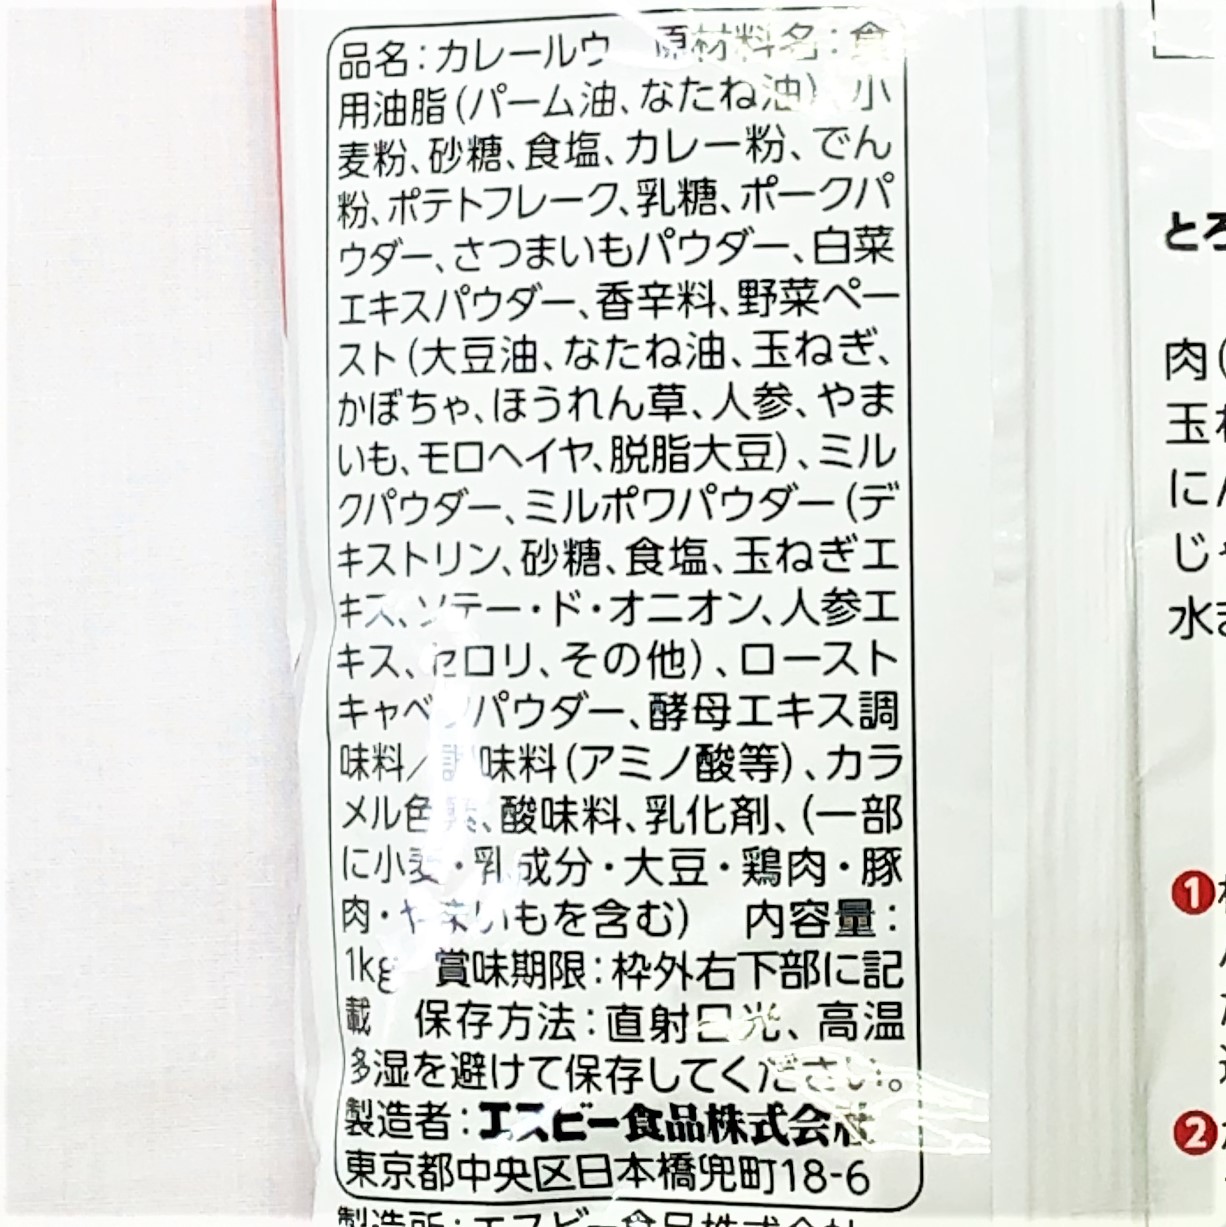 品名:カレールウ 原材料名:食
用油脂(パーム油、なたね油)、小
麦粉、砂糖、食塩、カレー粉、でん
粉、ポテトフレーク、乳糖、ポークパ
ウダー、さつまいもパウダー、白菜
エキスパウダー、香辛料、野菜ペー
スト(大豆油、なたね油、玉ねぎ、
かぼちゃ、ほうれん草、人参、やま
いも、モロヘイヤ、脱脂大豆)、ミル
クパウダー、ミルポワパウダー(デ
キストリン、砂糖、食塩、玉ねぎエ
キス、ソテー・ド・オニオン、人参エ
キス、セロリ、その他)、ロースト
キャベツパウダー、酵母エキス調
味料/調味料(アミノ酸等)、カラ
メル色素、酸味料、乳化剤、(一部
に小麦・乳成分・大豆・鶏肉・豚
肉・やまいもを含む) 内容量:
1kg 賞味期限:枠外右下部に記
載 保存方法:直射日光、高温
多湿を避けて保存してください。
製造者:エスビー食品株式会社
東京都中央区日本橋兜町18-6
製造所:エスビー食品株式会社
とろ
肉(
玉ね
にん
じゃ
水
1
2